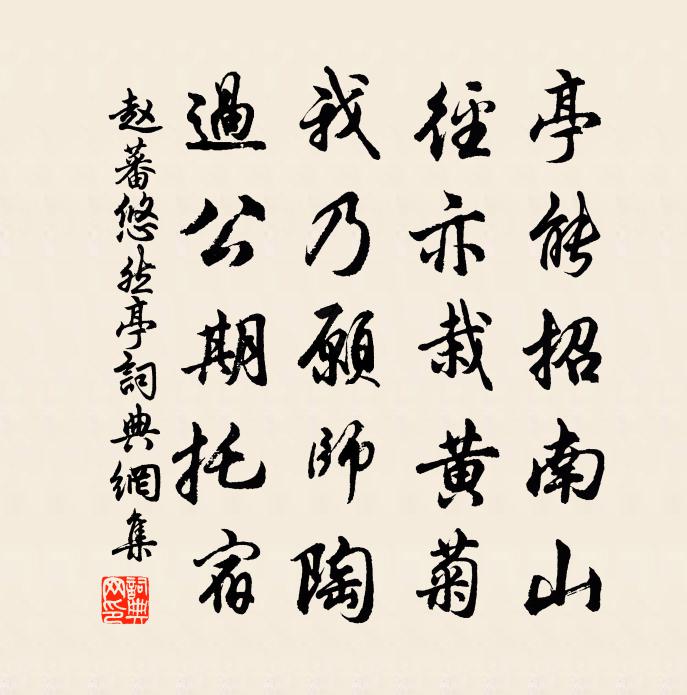 亭能招南山
徑亦栽黃菊
我乃願師陶
過公期托宿
赵蕃悠然亭詞典網集
詞典網印